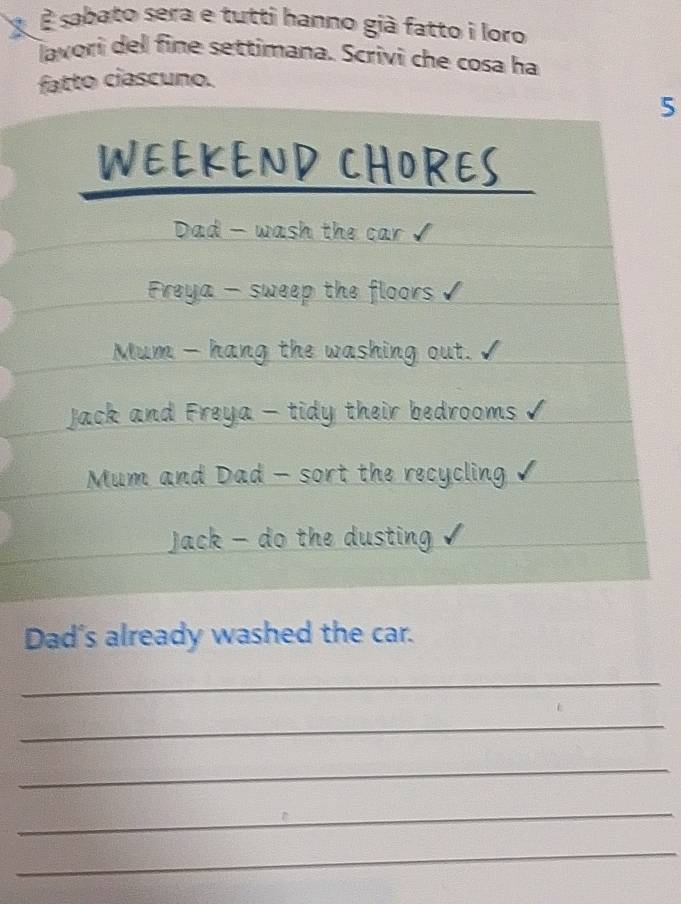 È sabato sera e tutti hanno già fatto i loro
lavori del fine settimana. Scrivi che cosa ha
fatto ciascuno.
5
WEEKEND CHORES
Dad - wash the car ✓
Freya - sweep the floors ✓
Mum - hang the washing out. ✓
Jack and Freya - tidy their bedrooms ✓
Mum and Dad - sort the recycling ✓
Jack - do the dusting ✓
Dad's already washed the car.